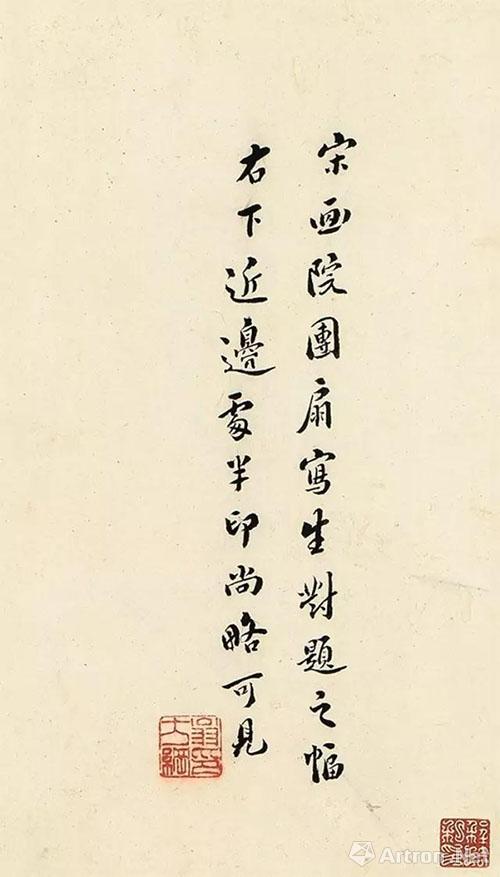 宋画院團扇寫生對題之幅
右下近邊處半印尚略可見
Artron.Net